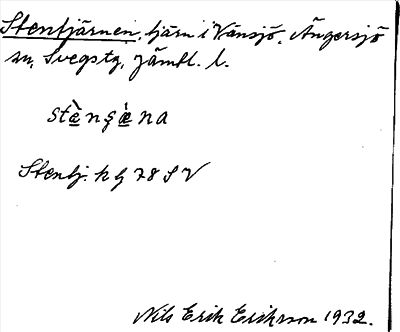 Stentjärnen, tjärn i Vänsjö, Ängersjö
sn, Svegstg, Jämtl. l.
stæ̀nʂæ̀na
Stentj. k bl 78 S V
Nils Erik Eriksson 1932.